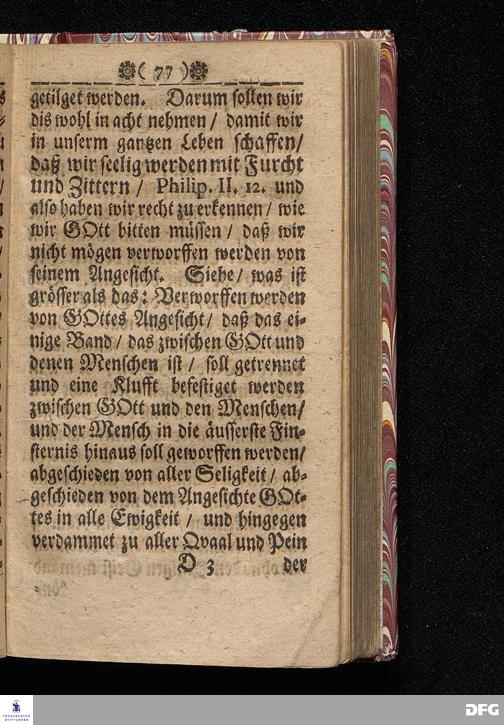 ( 77 )
getilget werden. Darum sollen wir
dis wohl in acht nehmen / damit wir
in unserm gantzen Leben schaffen/
daß wir seelig werden mit Furcht
und Zittern / Philip. II. 12. und
also haben wir recht zu erkennen / wie
wir GOtt bitten müssen / daß wir
nicht mögen verworffen werden von
seinem Angesicht. Siehe / was ist
grösser als das: Verworffen werden
von GOttes Angesicht / daß das ei-
nige Band / das zwischen GOtt und
denen Menschen ist / soll getrennet
und eine Klufft befestiget werden
zwischen GOtt und den Menschen/
und der Mensch in die äusserste Fin-
sternis hinaus soll geworffen werden/
abgeschieden von aller Seligkeit / ab-
geschieden von dem Angesichte GOt-
tes in alle Ewigkeit / und hingegen
verdammet zu aller Qvaal und Pein
D 3 der
FRANCKESCHE
STIFTUNGEN
DFG